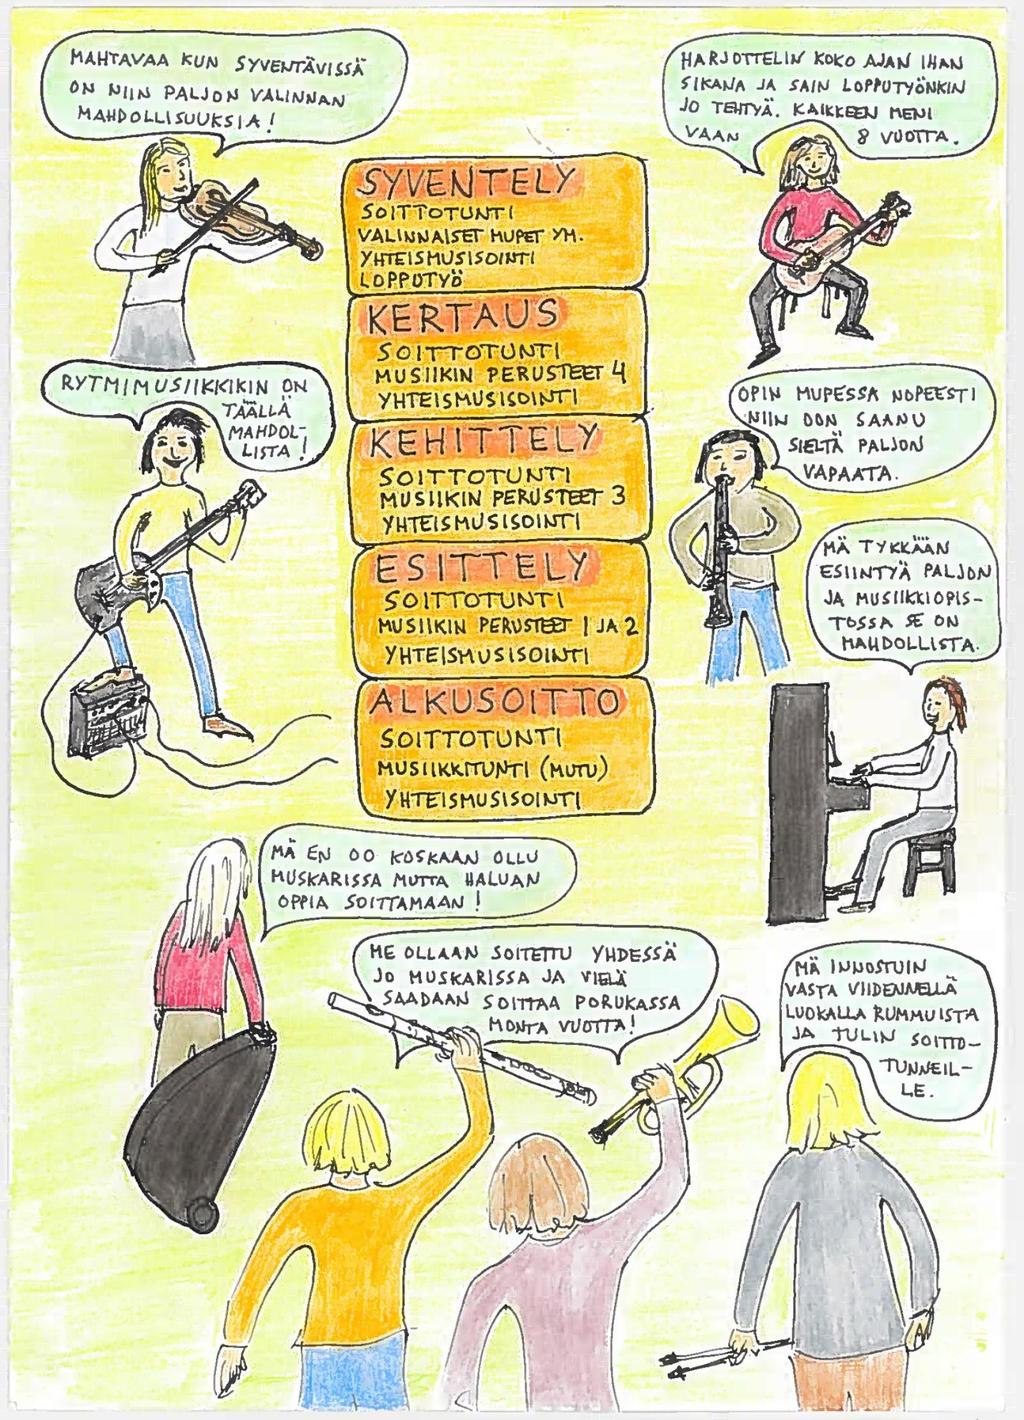 MAHTAVAA KUN SYVENTÄVISSÄ
ON NIIN PALJON VALINNAN
MAHDOLLISUUKSIA!
HARJOTTELIN KOKO AJAN IHAN
SIKANA JA SAIN LOPPUTYÖNKIN
JO TEHTYÄ. KAIKKEEN MENI
VAAN 8 VUOTTA.
SYVENTELY
SOITTOTUNTI
VALINNAISET MUPET YM.
YHTEISMUSISOINTI
LOPPUTYÖ
KERTAUS
SOITTOTUNTI
MUSIIKIN PERUSTEET 4
YHTEISMUSISOINTI
KEHITTELY
SOITTOTUNTI
MUSIIKIN PERUSTEET 3
YHTEISMUSISOINTI
ESITTELY
SOITTOTUNTI
MUSIIKIN PERUSTEET 1 JA 2
YHTEISMUSISOINTI
ALKUSOITTO
SOITTOTUNTI
MUSIIKKITUNTI (MUTU)
YHTEISMUSISOINTI
RYTMIMUSIIKKIKIN ON
TÄÄLLÄ
MAHDOL-
LISTA!
OPIN MUPESSA NOPEESTI
NIIN OON SAANU
SIELTÄ PALJON
VAPAATA.
MÄ TYKKÄÄN
ESIINTYÄ PALJON
JA MUSIIKKIOPIS-
TOSSA SE ON
MAHDOLLISTA.
MÄ EN OO KOSKAAN OLLU
MUSKARISSA MUTTA HALUAN
OPPIA SOITTAMAAN!
ME OLLAAN SOITETTU YHDESSÄ
JO MUSKARISSA JA VIELÄ
SAADAAN SOITTAA PORUKASSA
MONTA VUOTTA!
MÄ INNOSTUIN
VASTA VIIDENNELLÄ
LUOKALLA RUMMUISTA
JA TULIN SOITTO-
TUNNEIL-
LE.